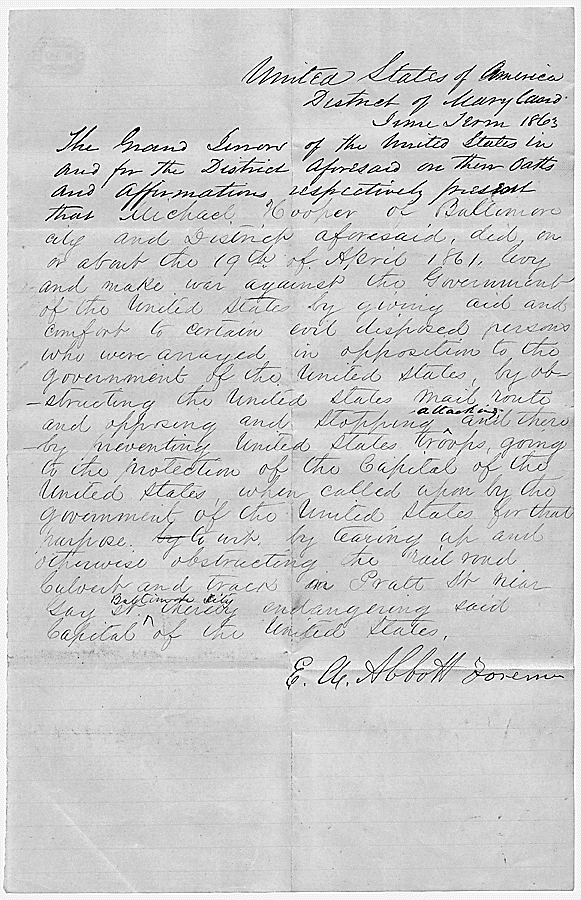 United States of America
District of Maryland
June Term 1863
The Grand Jurors of the United States in
and for the District aforesaid on their Oaths
and affirmations respectively present
that Michael Hooper of Baltimore
city and District aforesaid, did, on
or about the 19th of April 1861, levy
and make war against the Government
of the United States by giving aid and
comfort to certain evil disposed persons
who were arrayed in opposition to the
government of the United States, by ob-
-structing the United States mail route
and opposing and stopping attacking and there
-by preventing United States troops, going
to the protection of the Capital of the
United States, when called upon by the
government of the United States for that
purpose. by to wit, by tearing up and
otherwise obstructing the rail road
culvert and track in Pratt St near
Gay St Baltimore City thereby endangering said
Capital of the United States.
E. A. Abbott Foreman